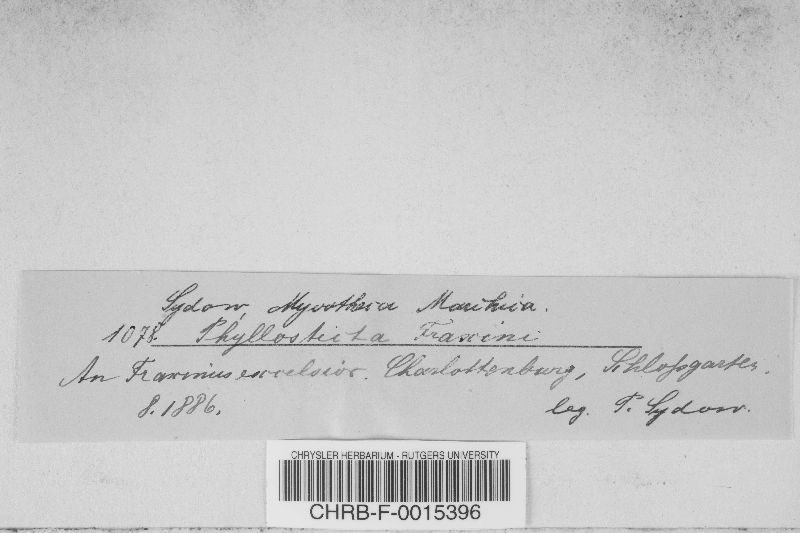 Sydow, Mycotheca Marchica.
1078. Phyllosticta Fraxini
An Fraxinus excelsior. Charlottenburg, Schloßgarten.
8.1886. leg. P. Sydow.
CHRYSLER HERBARIUM - RUTGERS UNIVERSITY
CHRB-F-0015396